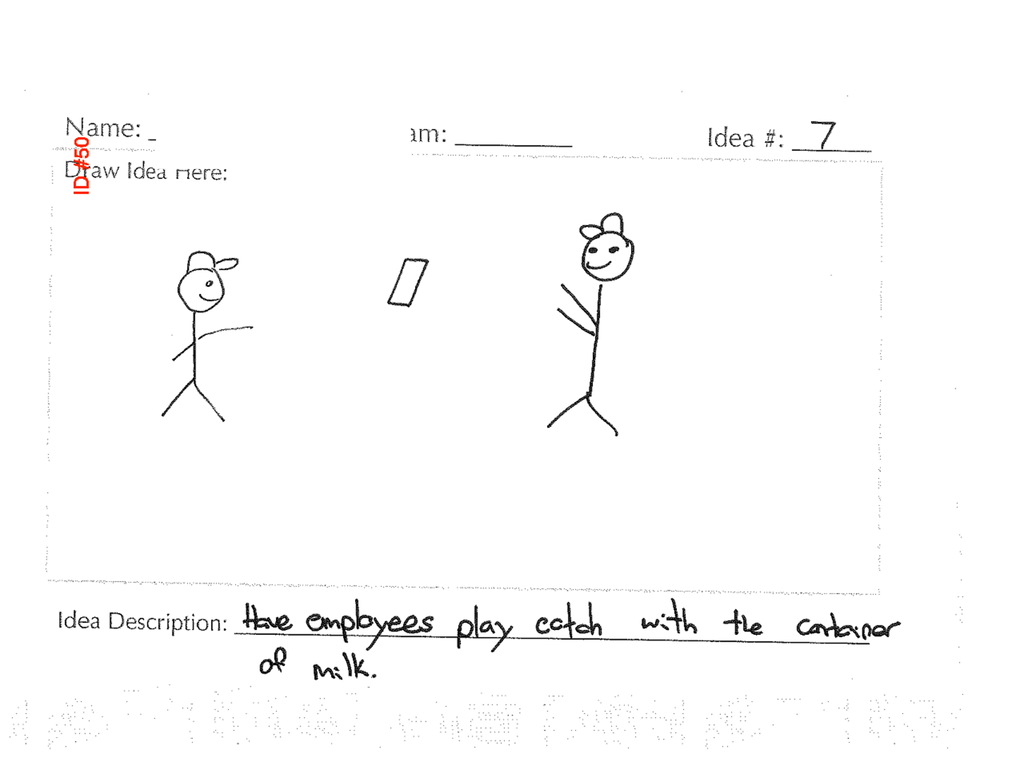 Name: _ am: ______ Idea #: 7
ID #50
Draw Idea Here:
Idea Description: Have employees play catch with the container
of milk.